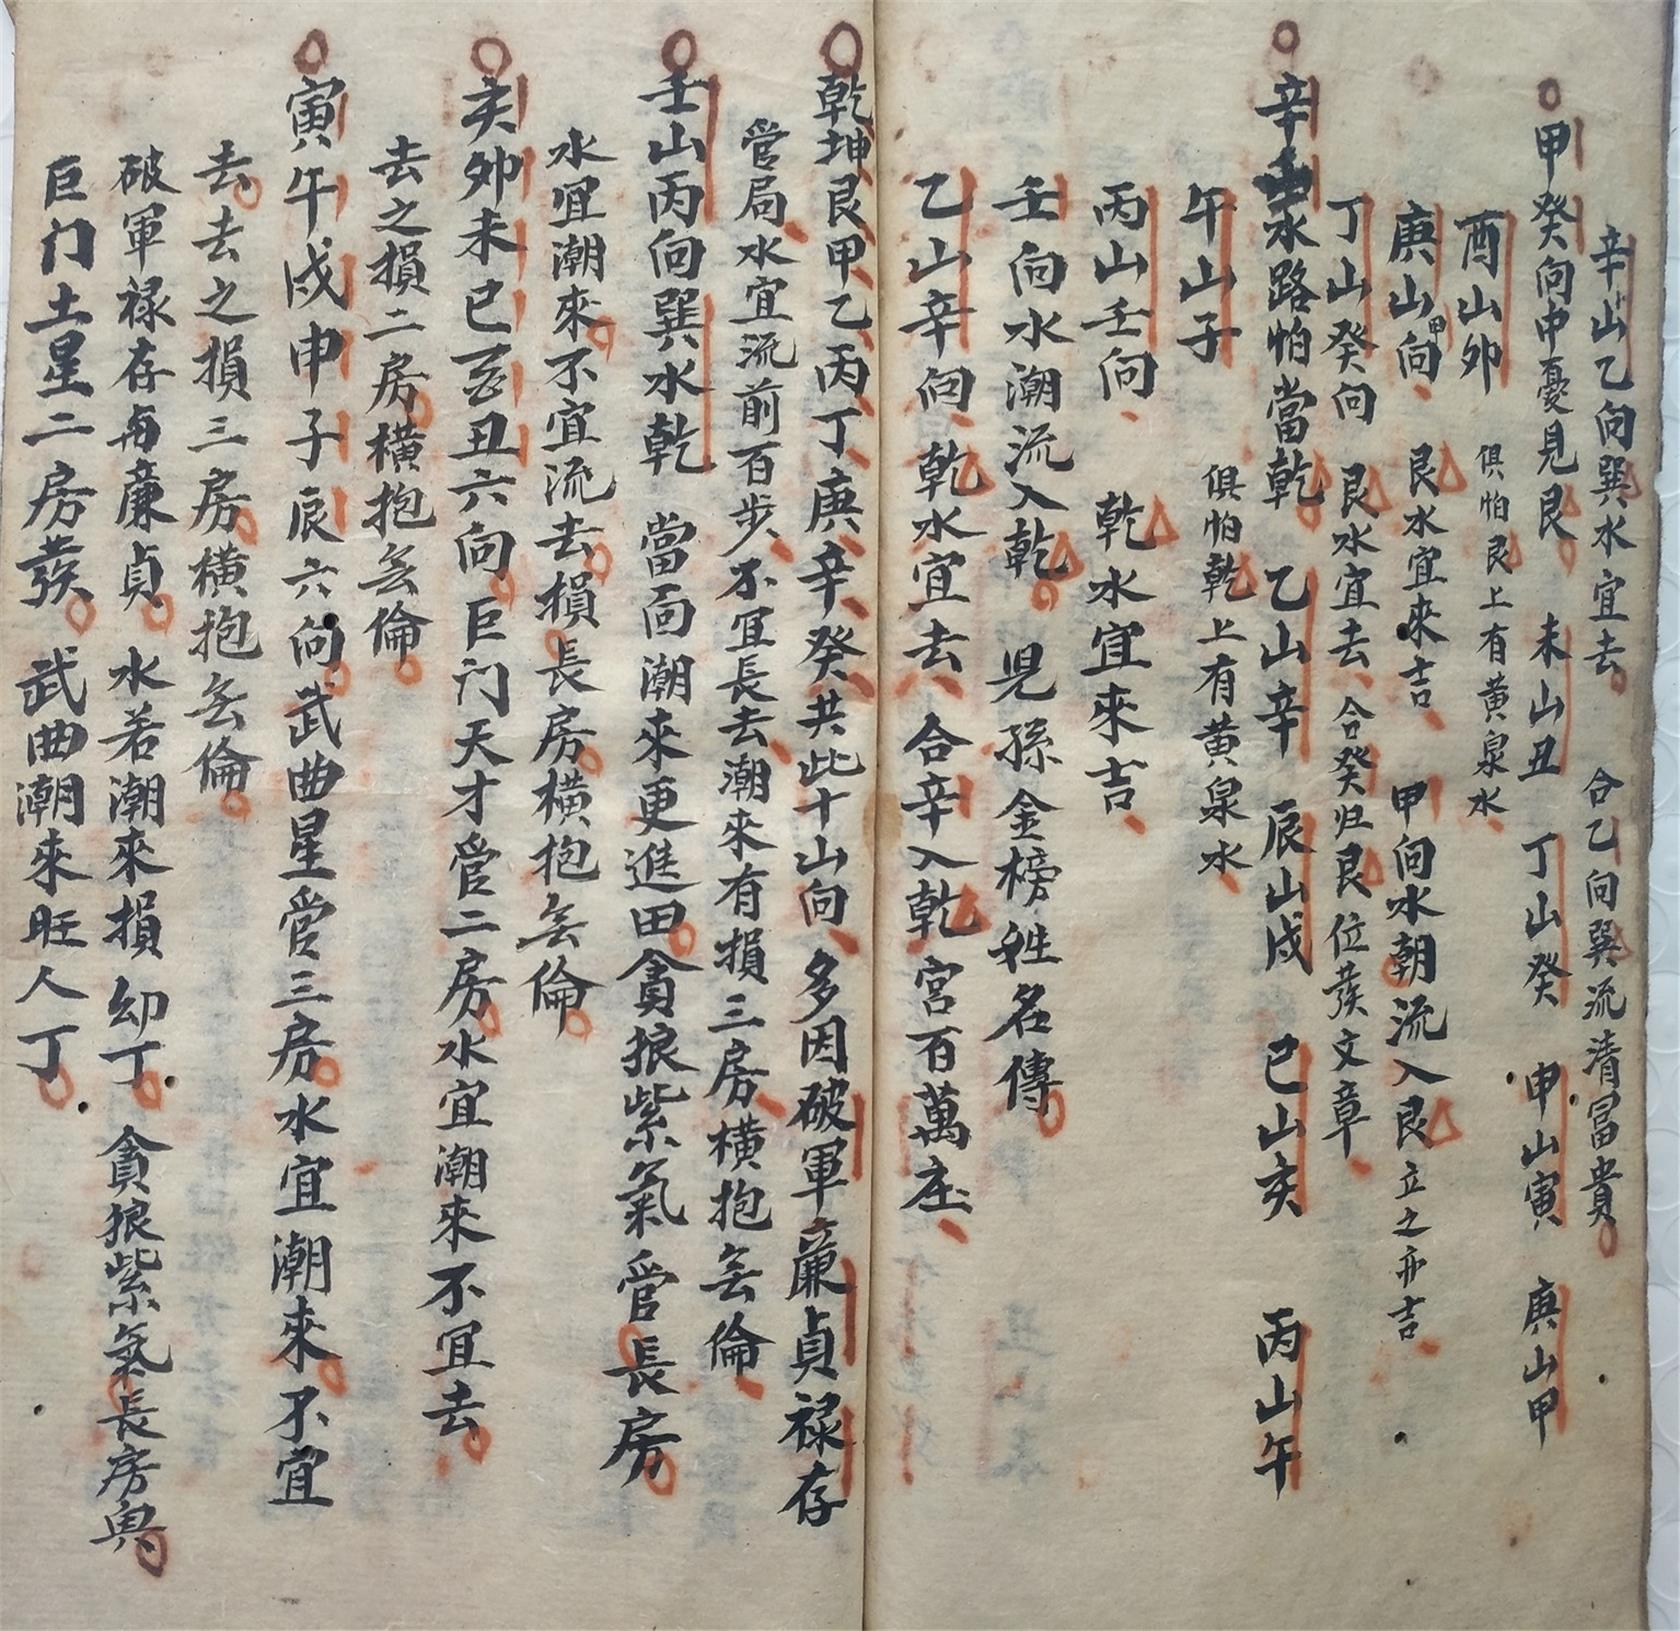 辛山乙向巽水宜去 合乙向巽流清冨貴
甲癸向中憂見艮 未山丑 丁山癸 申山寅 庚山甲
酉山夘 俱怕艮上有黄泉水
庚山甲向 艮水宜來吉 甲向水朝流入艮立之亦吉
丁山癸向 艮水宜去 合癸归艮位發文章
辛水路怕當乾 乙山辛 辰山戌 巳山亥 丙山午
午山子 俱怕乾上有黄泉水
丙山壬向 乾水宜來吉
壬向水潮流入乾 児孫金榜姓名傳
乙山辛向 乾水宜去 合辛入乾宮百萬庄
乾坤艮甲乙丙丁庚辛癸共此十山向 多因破軍蔗貞禄存
管局水宜流前百步不宜長去潮來有損三房橫抱無倫
壬山丙向巽水乾 當面潮來更進田貪狼紫氣管長房
水宜潮來不宜流去損長房橫抱無倫
亥夘未巳酉丑六向巨门天才管二房水宜潮來不宜去
去之損二房橫抱無倫
寅午戌申子辰六向武曲星管三房水宜潮來不宜
去去之損三房橫抱無倫
破軍禄存與蔗貞 水若潮來損幼丁 貪狼紫氣長房興
巨门土星二房發 武曲潮來旺人丁